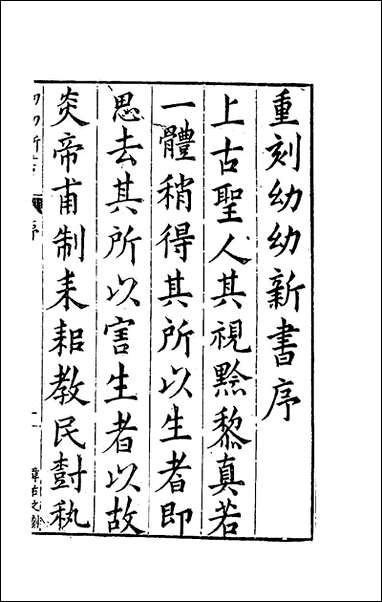 重刻幼幼新書序
上古聖人其視黔黎真若
一體稍得其所以生者即
思去其所以害生者以故
炎帝甫制耒耜教民𡔷秇
幼幼新書
序